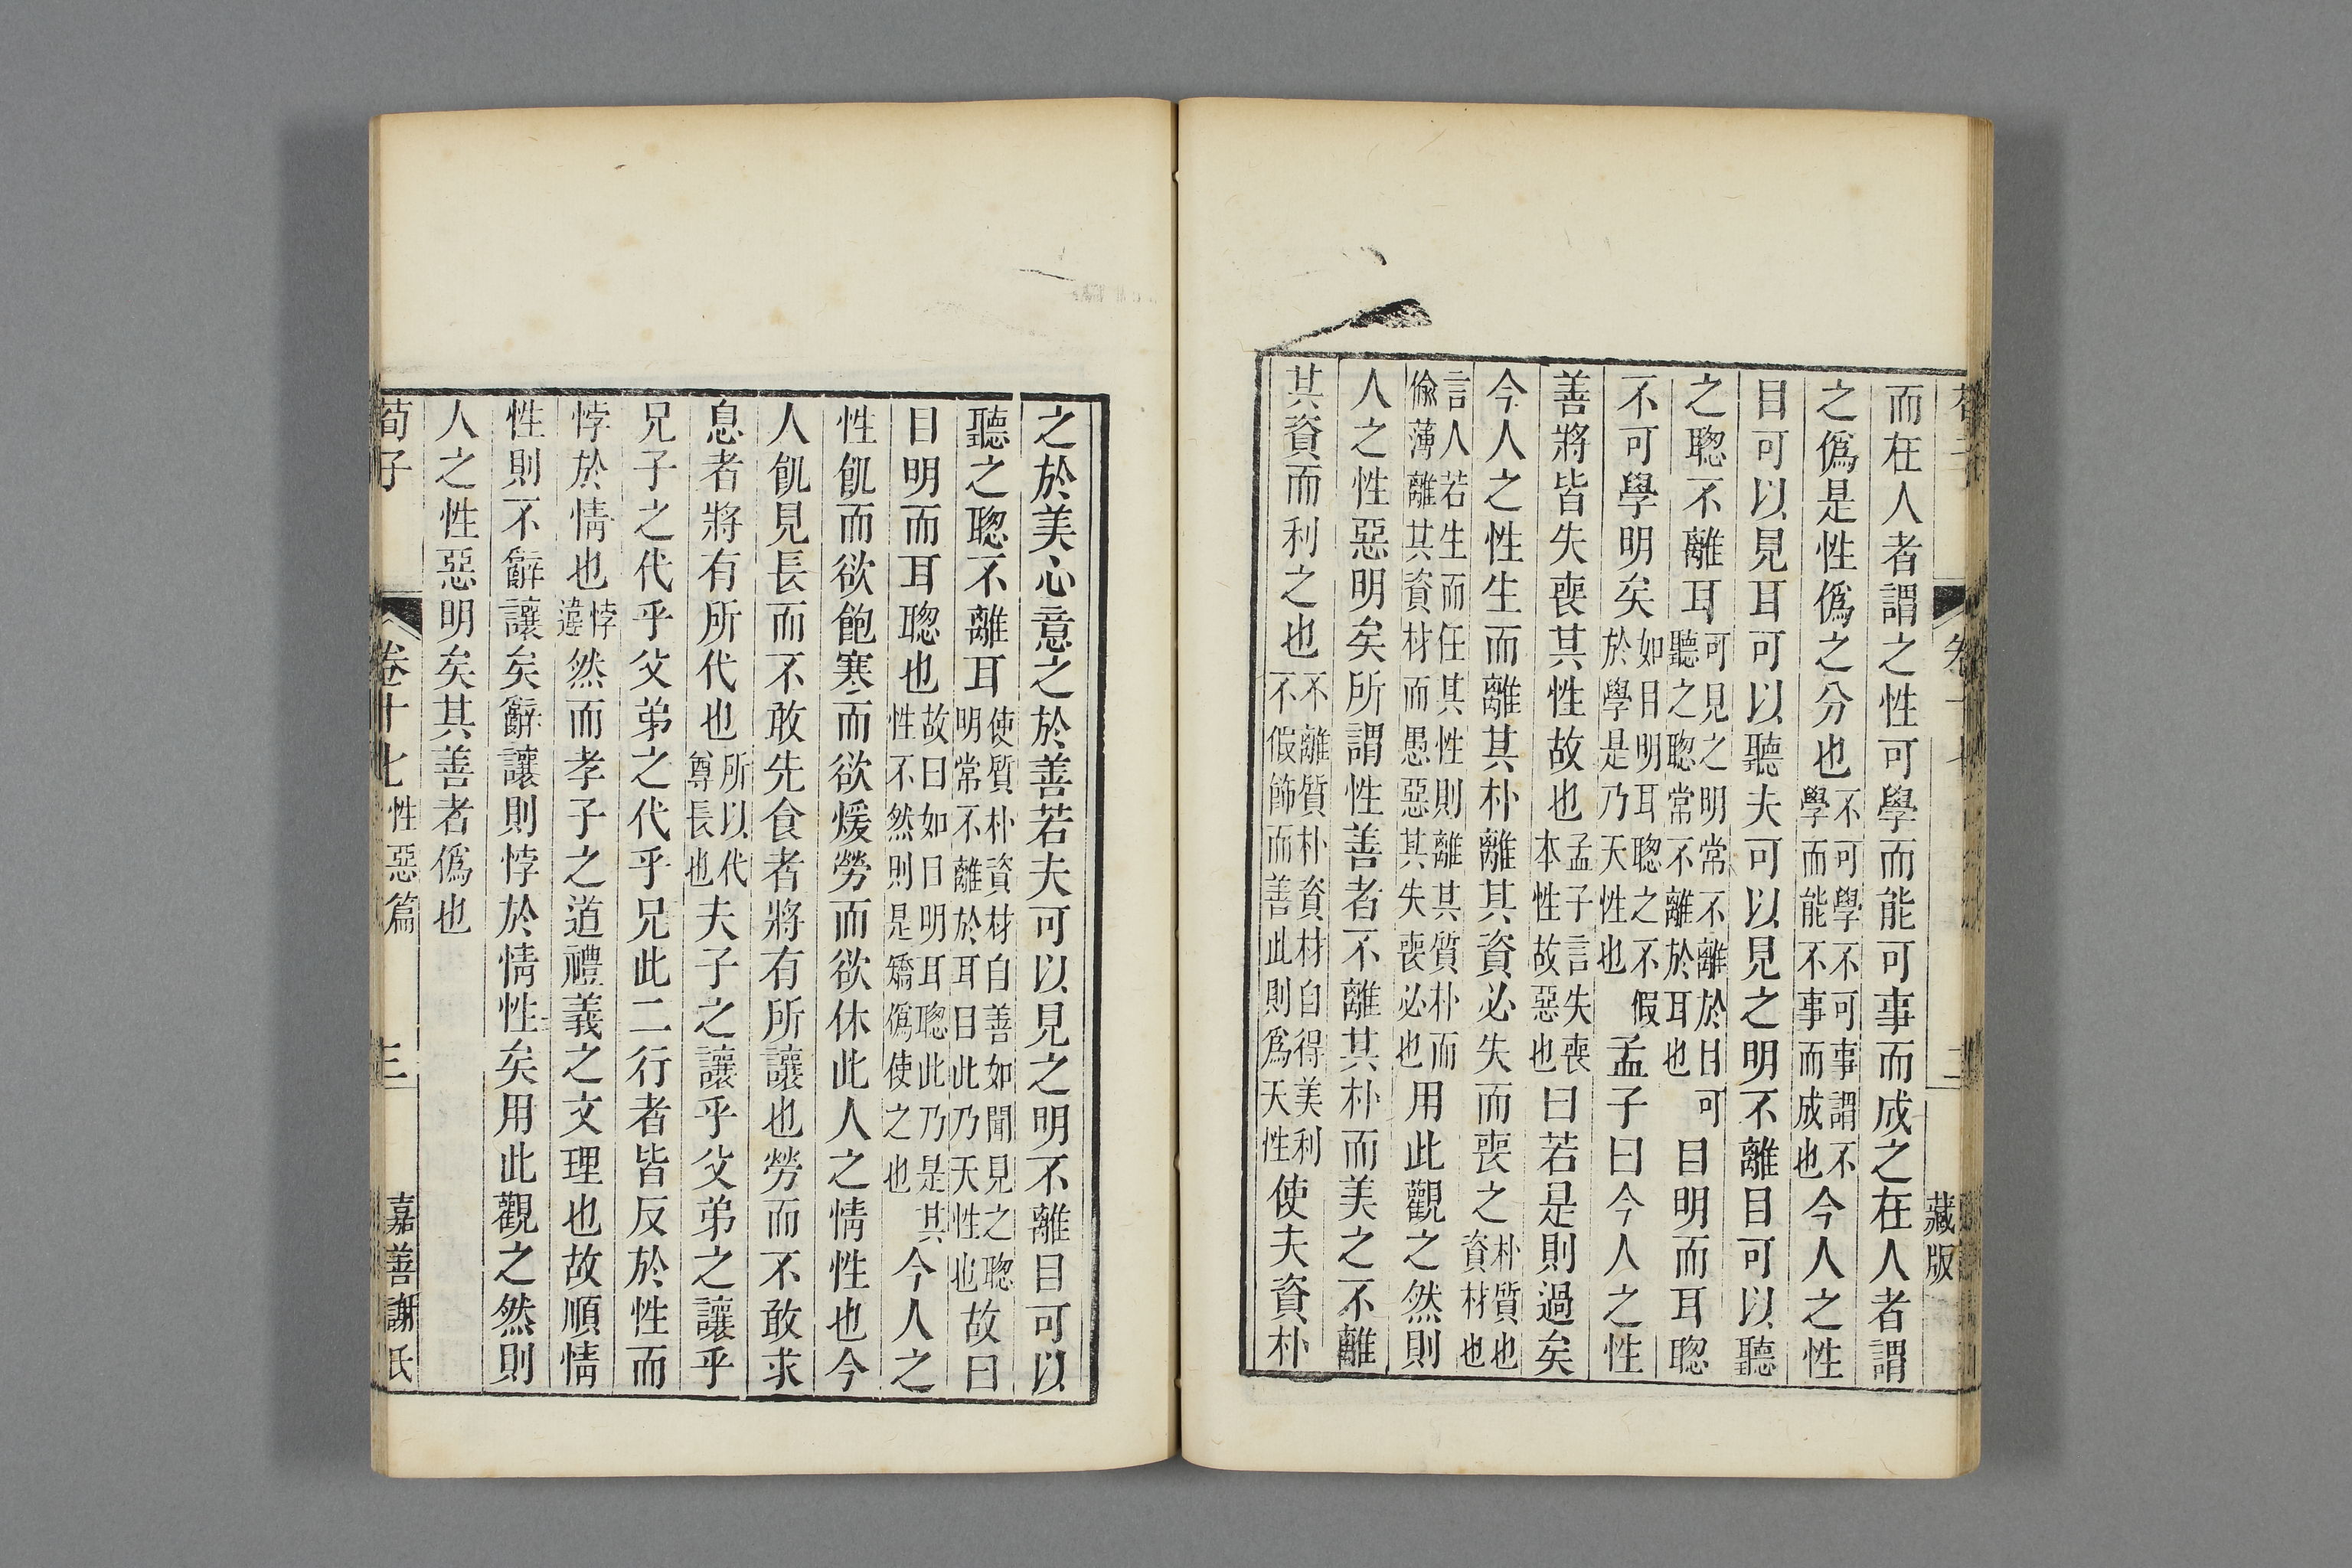 藏版
而在人者謂之性可學而能可事而成之在人者謂
之僞是性僞之分也不可學不可事謂不學而能不事而成也今人之性
目可以見耳可以聽夫可以見之明不離目可以聽
之聰不離耳可見之明常不離於目可聽之聰常不離於耳也目明而耳聰
不可學明矣如目明耳聰之不假於學是乃天性也孟子曰今人之性
善將皆失喪其性故也孟子言失喪本性故惡也曰若是則過矣
今人之性生而離其朴離其資必失而喪之朴質也資材也
言人若生而任其性則離其質朴而偷薄離其資材而愚惡其失喪必也用此觀之然則
人之性惡明矣所謂性善者不離其朴而美之不離
其資而利之也不離質朴資材自得美利不假飾而善此則爲天性使夫資朴
之於美心意之於善若夫可以見之明不離目可以
聽之聰不離耳使質朴資材自善如聞見之聰明常不離於耳目此乃天性也故曰
目明而耳聰也故曰如目明耳聰此乃是其性不然則是矯僞使之也今人之
性飢而欲飽寒而欲煖勞而欲休此人之情性也今
人飢見長而不敢先食者將有所讓也勞而不敢求
息者將有所代也所以代尊長也夫子之讓乎父弟之讓乎
兄子之代乎父弟之代乎兄此二行者皆反於性而
悖於情也悖違然而孝子之道禮義之文理也故順情
性則不辭讓矣辭讓則悖於情性矣用此觀之然則
人之性惡明矣其善者僞也
荀子 卷十七 性惡篇 三 嘉善謝氏